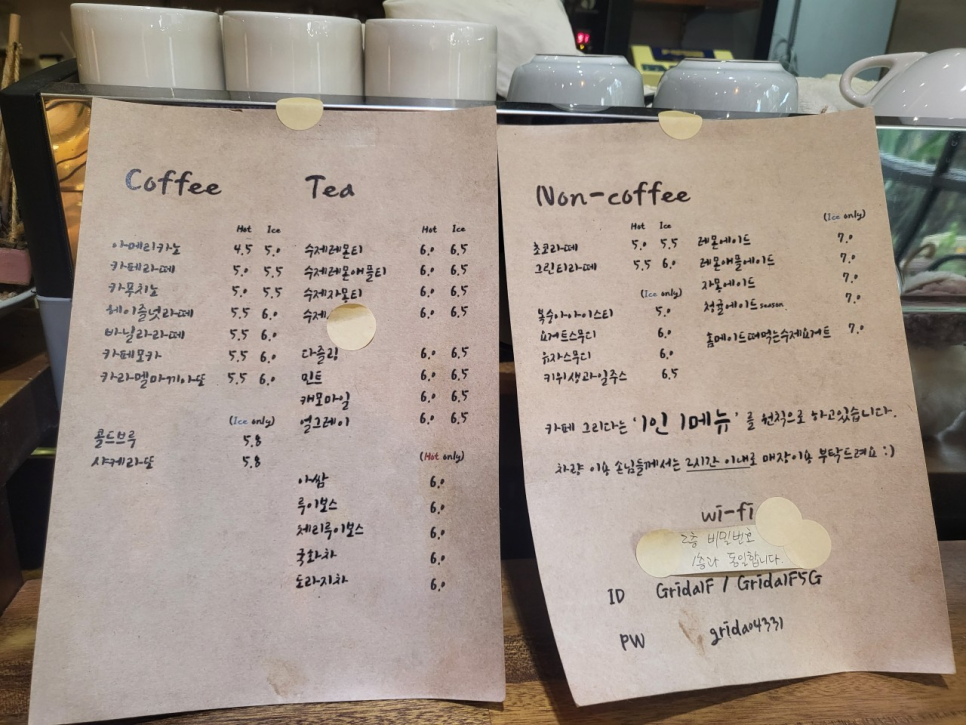 Coffee
Hot Ice
아메리카노 4.5 5.0
카페라떼 5.0 5.5
카푸치노 5.0 5.5
헤이즐넛라떼 5.5 6.0
바닐라라떼 5.5 6.0
카페모카 5.5 6.0
카라멜마끼아또 5.5 6.0
(Ice only)
콜드브루 5.8
샤케라또 5.8
Tea
Hot Ice
수제레몬티 6.0 6.5
수제레몬애플티 6.0 6.5
수제자몽티 6.0 6.5
수제 6.0 6.5
다즐링 6.0 6.5
민트 6.0 6.5
캐모마일 6.0 6.5
얼그레이 6.0 6.5
(Hot only)
아쌈 6.0
루이보스 6.0
체리루이보스 6.0
국화차 6.0
도라지차 6.0
Non-coffee
Hot Ice
초코라떼 5.0 5.5
그린티라떼 5.5 6.0
(Ice only)
복숭아아이스티 5.0
요거트스무디 6.0
유자스무디 6.0
키위생과일주스 6.5
(Ice only)
레몬에이드 7.0
레몬애플에이드 7.0
자몽에이드 7.0
청귤에이드 season 7.0
홈메이드떠먹는수제요거트 7.0
카페 그리다는 '1인 1메뉴' 를 원칙으로 하고있습니다.
차량 이용 손님들께서는 2시간 이내로 매장이용 부탁드려요 :)
wi-fi
2층 비밀번호
1층과 동일합니다.
ID Grida1F / Grida1F5G
PW grida04331